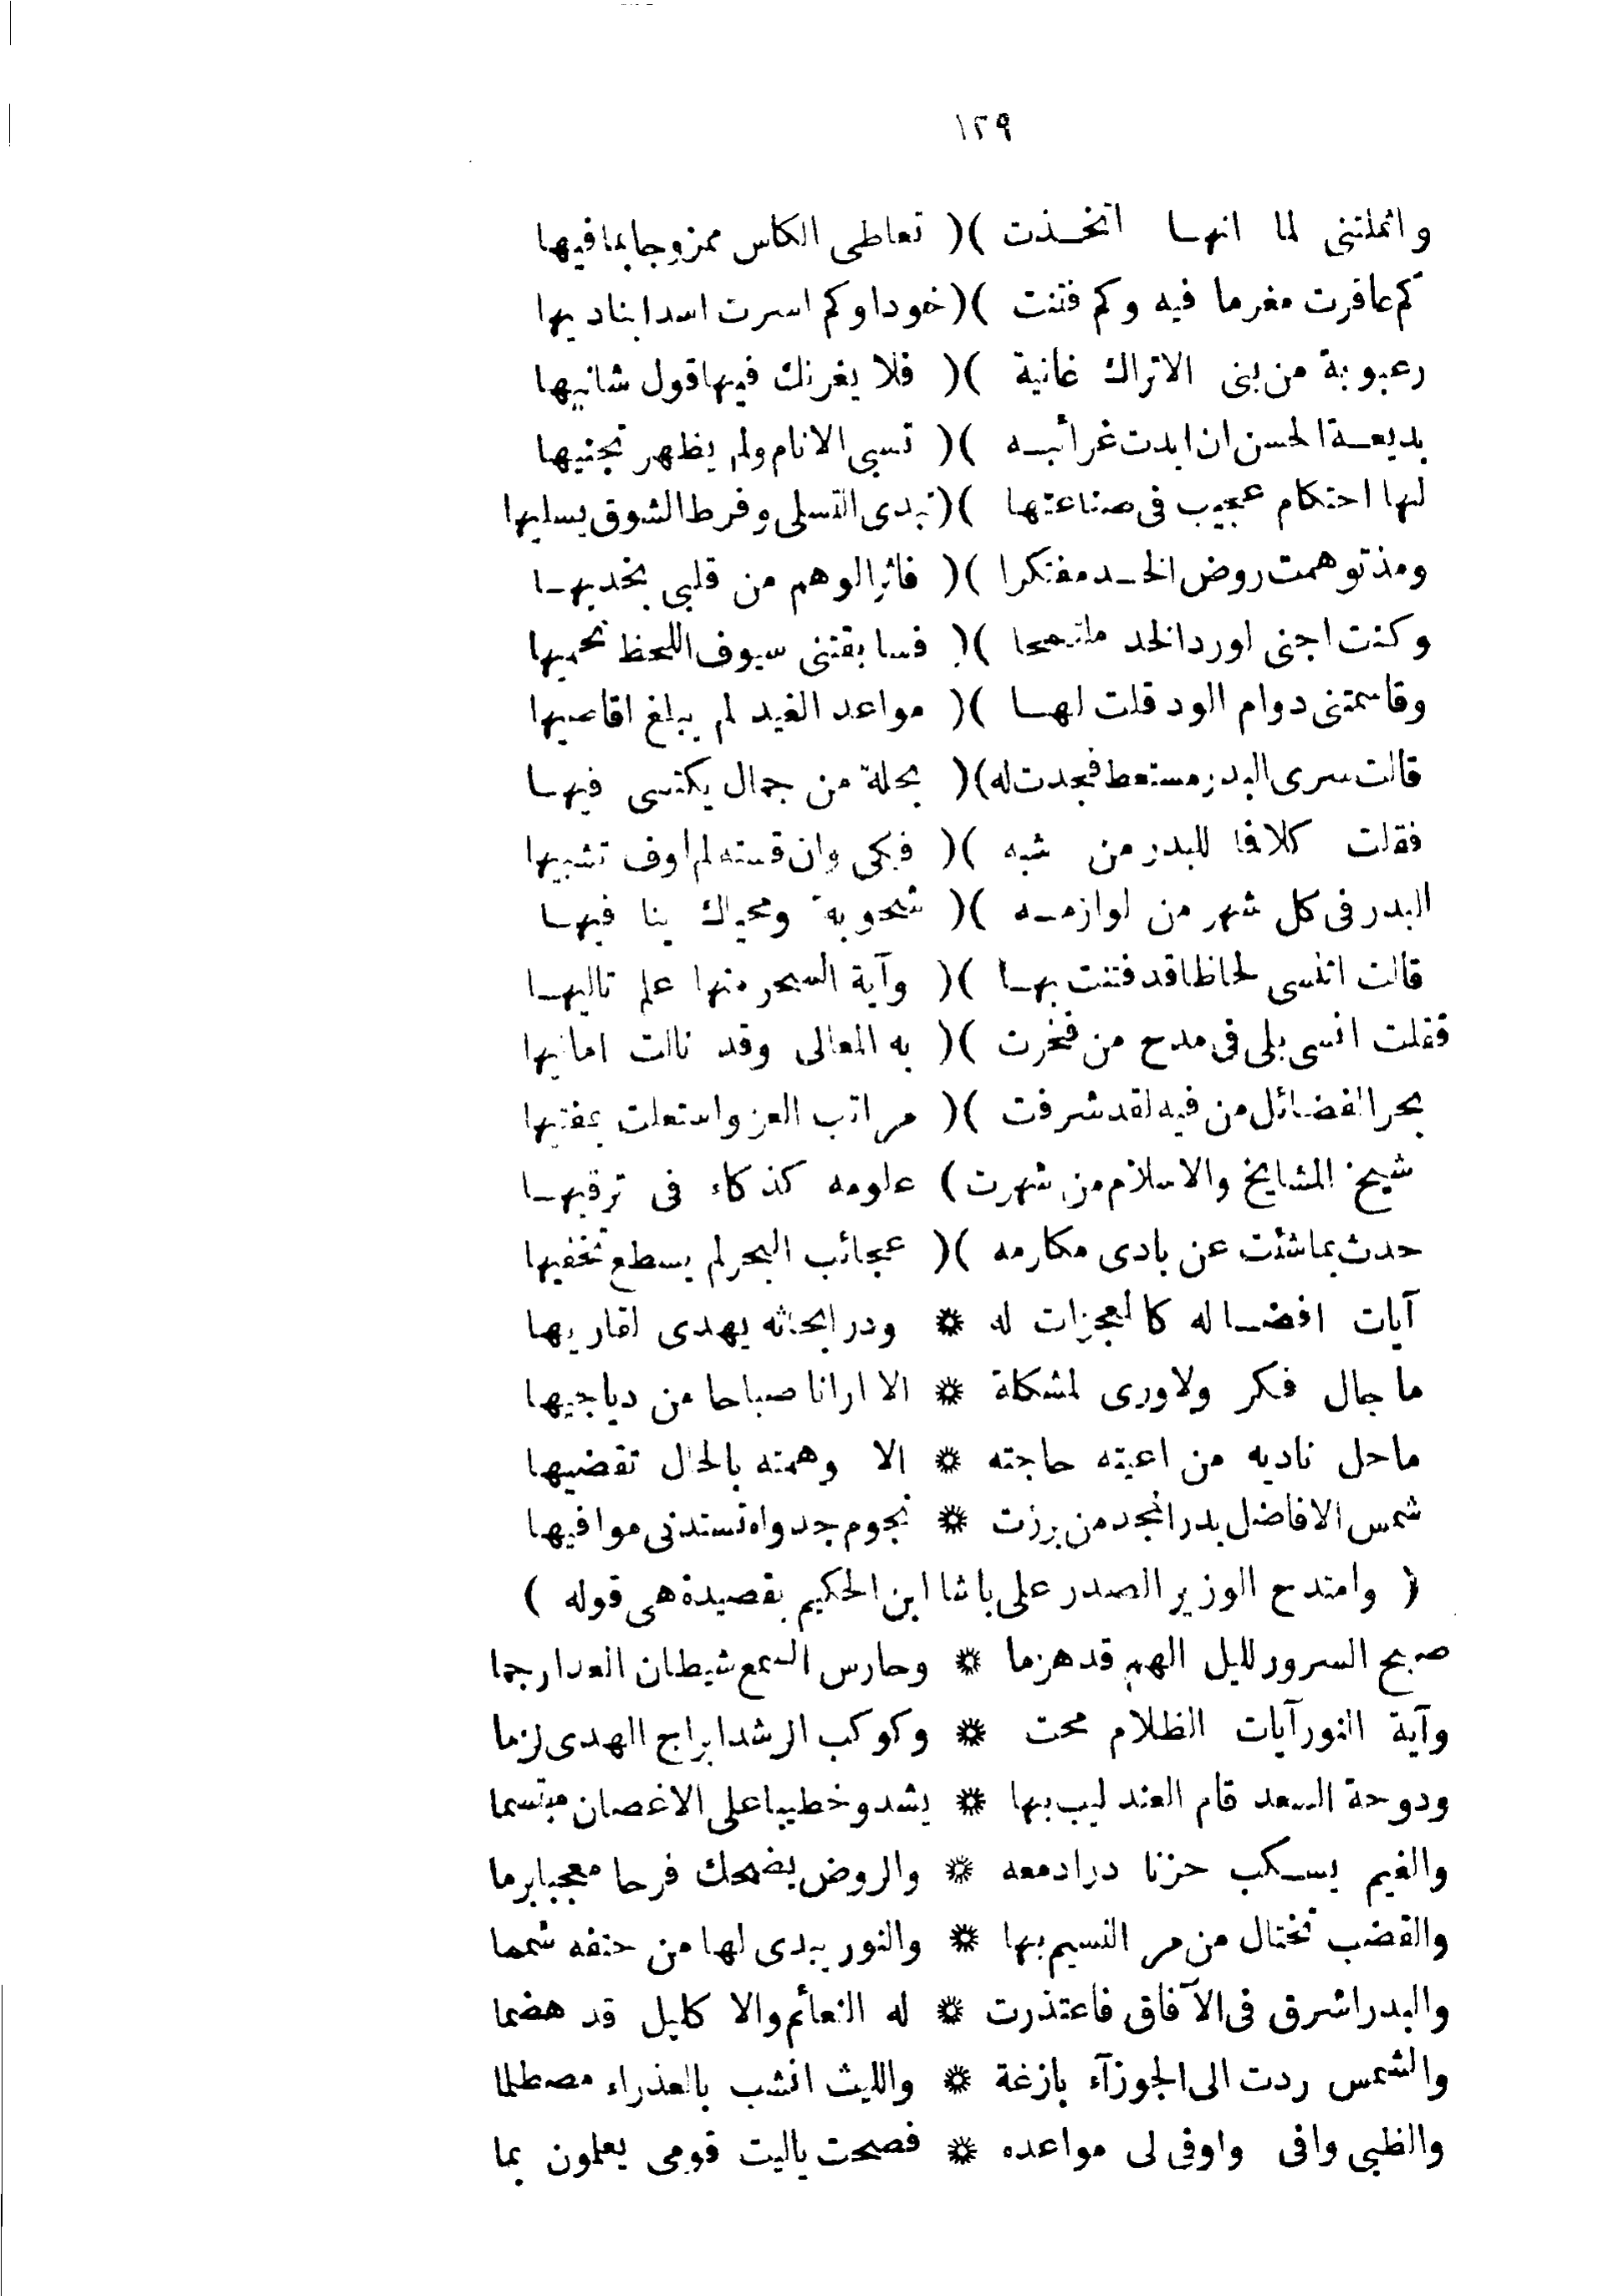 ١٢٩
واثملتنى لما انها اتخذت )( تعاطى الكاس ممزوجا بما فيها
كم عاقرت مغرما فيه وكم فتنت )( خودا وكم اسرت اسدا بناديها
رعبوبة من بنى الاتراك غانية )( فلا يغرنك فيها قول شانيها
بديعة الحسن ان ابدت غرائبه )( تسبى الانام ولم يظهر تجنيها
لها احتكام عجيب فى صناعتها )( تبدى التسلى وفرط الشوق يسليها
ومذ توهمت روض الخد مفتكرا )( فاثر الوهم من قلبى بخديها
وكنت اجنى لورد الخد ملتمحا )( فسابقتنى سيوف اللحظ تحميها
وقاسمتنى دوام الود قلت لها )( مواعد الغيد لم يبلغ اقاصيها
قالت سرى البدر مستعط فجدت له )( بحلة من جمال يكتسى فيها
فقلت كلا فما للبدر من شبه )( فيكى وان قسته لم اوف تشبيها
البدر فى كل شهر من لوازمه )( شحوبة ومحياك ينا فيها
قالت اتنسى لحاظا قد فتنت بها )( وآية السحر منها علم تاليها
فقلت انسى بلى فى مدح من فخرت )( به المعالى وقد نالت امانيها
بحر الفضائل من فيه لقد شرفت )( مراتب العز واستعلت بمفتيها
شيخ المشايخ والاسلام من شهرت ) علومه كذكاء فى ترقيها
حدث بما شئت عن بادى مكارمه )( عجائب البحر لم يسطع تخفيها
آيات افضاله كالمعجزات له ❊ ودر ابحاثه يهدى لقاريها
ما جال فكر ولا ورى لمشكلة ❊ الا ارانا صباحا من دياجيها
ما حل ناديه من اعيته حاجته ❊ الا وهمته بالحال تقضيها
شمس الافاضل بدر المجد من برزت ❊ نجوم جدواه تستدنى موافيها
( وامتدح الوزير الصدر على باشا ابن الحكيم بقصيدة هى قوله )
صبح السرور لليل الهم قد هزما ❊ وحارس السمع شيطان العدا رجما
وآية النور آيات الظلام محت ❊ وكوكب الرشد ابراج الهدى لزما
ودوحة السعد قام العندليب بها ❊ يشدو خطيبا على الاغصان مبتسما
والغيم يسكب حزنا در ادمعه ❊ والروض يضحك فرحا معجبا برما
والقضب تختال من مر النسيم بها ❊ والنور يبدى لها من حنقه شمما
والبدر اشرق فى الآفاق فاعتذرت ❊ له النعائم والاكليل قد هضما
والشمس ردت الى الجوزآء بازغة ❊ والليث انشب بالعذراء مصطلما
والظبى وافى واوفى لى مواعده ❊ فصحت ياليت قومى يعلمون بما